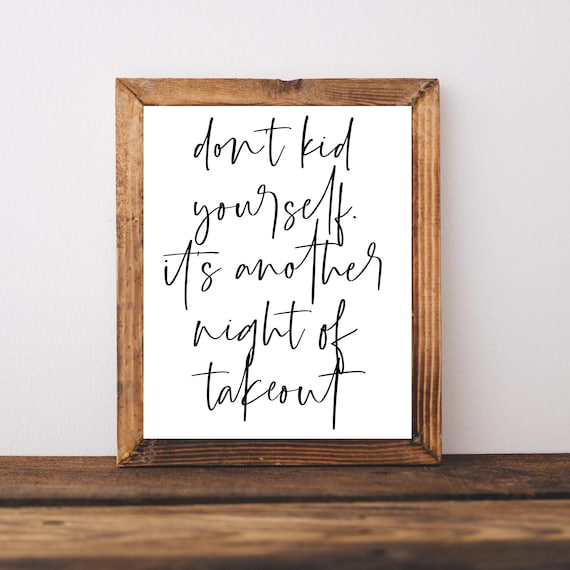 don't kid
yourself.
it's another
night of
takeout